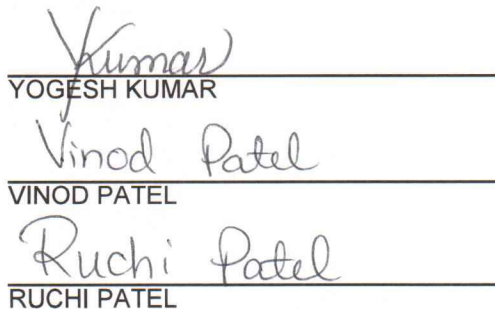 YKumar
YOGESH KUMAR
Vinod Patel
VINOD PATEL
Ruchi Patel
RUCHI PATEL